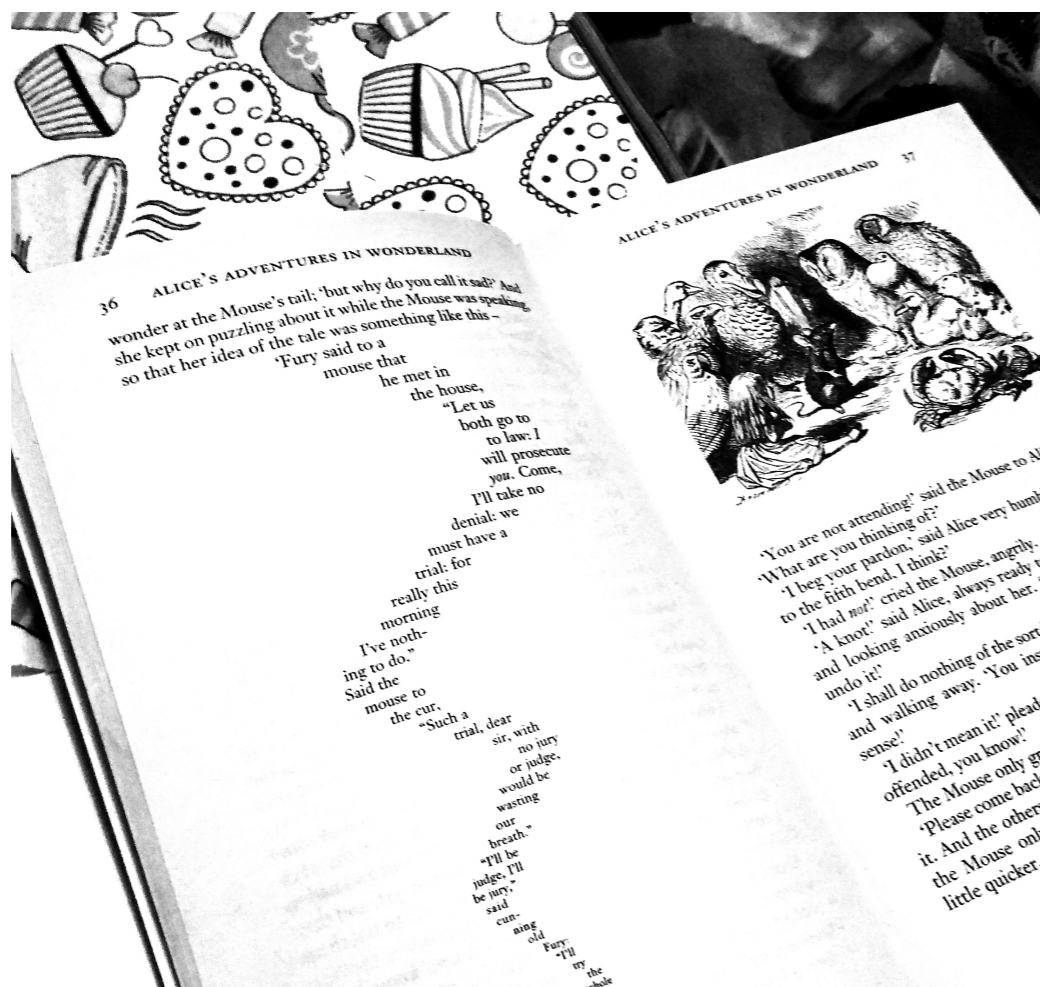 36
ALICE'S ADVENTURES IN WONDERLAND
wonder at the Mouse's tail; 'but why do you call it sad?' And
she kept on puzzling about it while the Mouse was speaking,
so that her idea of the tale was something like this –
'Fury said to a
mouse that
he met in
the house,
"Let us
both go to
to law: I
will prosecute
you. Come,
I'll take no
denial: we
must have a
trial: for
really this
morning
I've noth-
ing to do."
Said the
mouse to
the cur,
"Such a
trial, dear
sir, with
no jury
or judge,
would be
wasting
our
breath."
"I'll be
judge, I'll
be jury,"
said
cun-
ning
old
Fury:
"I'll
try
the
whole
ALICE'S ADVENTURES IN WONDERLAND
37
'You are not attending!' said the Mouse to
'What are you thinking of?'
'I beg your pardon,' said Alice very
to the fifth bend, I think?'
'I had not!' cried the Mouse, angrily.
'A knot!' said Alice, always ready
and looking anxiously about her.
undo it!'
'I shall do nothing of the
and walking away. 'You
sense!'
'I didn't mean it!'
offended, you know!'
The Mouse only
'Please come
it. And the
the Mouse
little quicker.